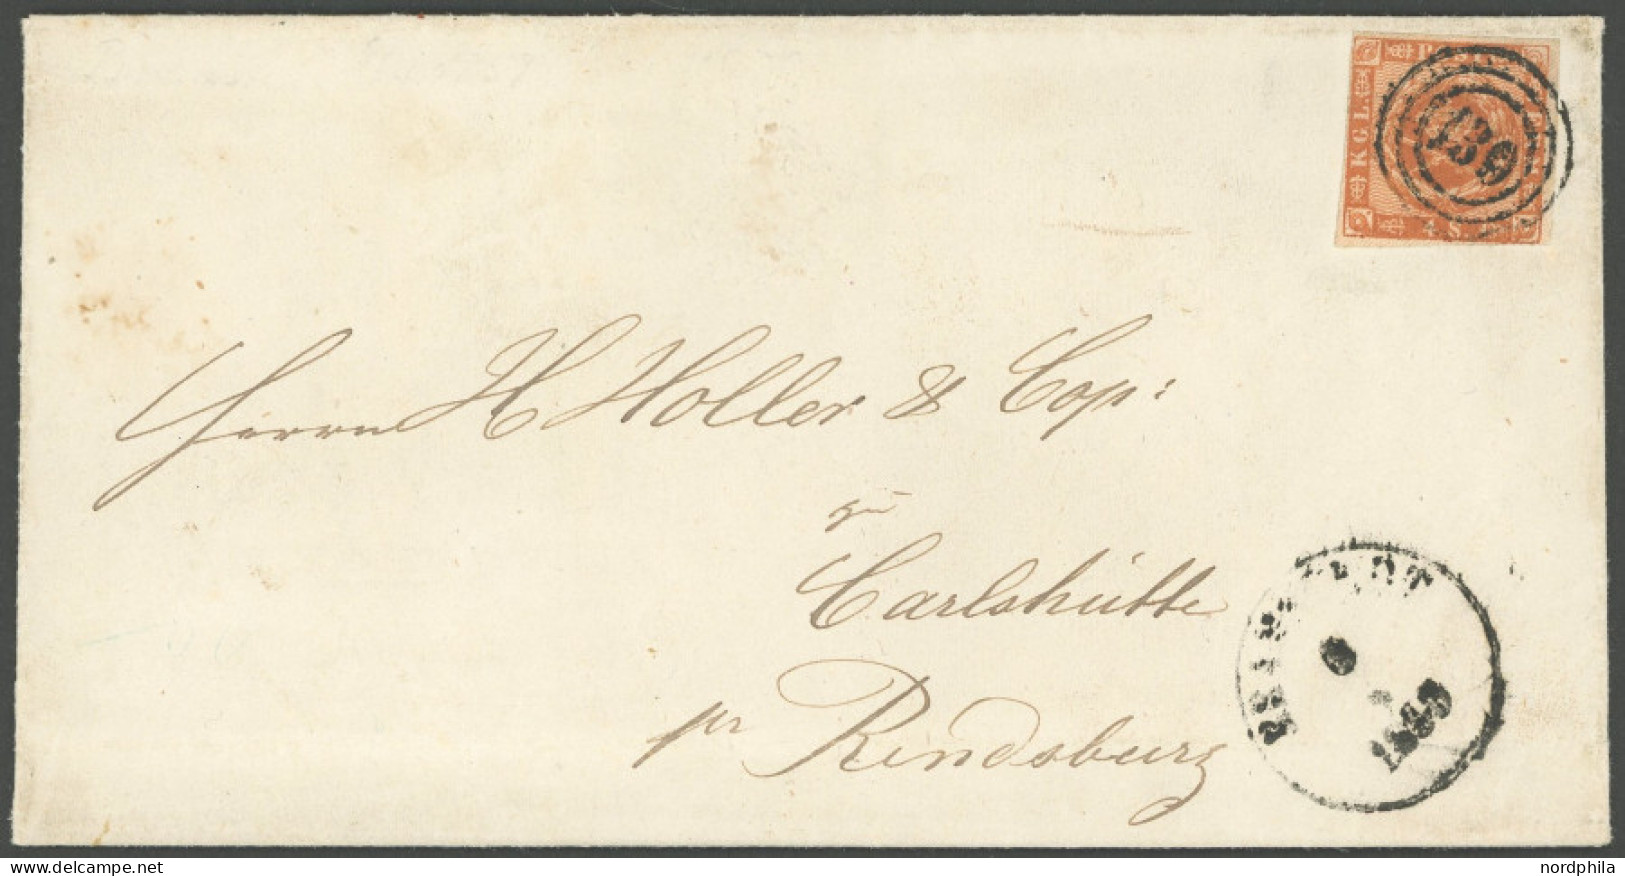 KGL. PO
4 S.
139
Herrn H Holler & Cop:
zu
Carlshütte
pr Rendsburg
delcampe.net
nordphila